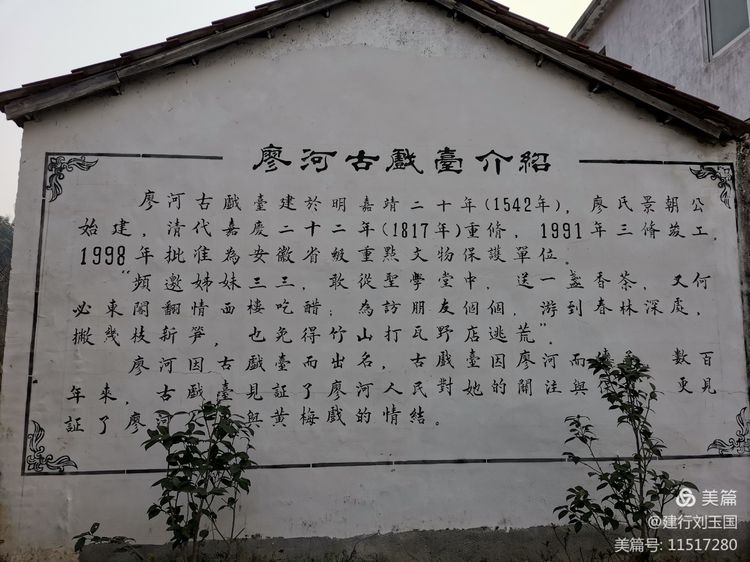 廖河古戲臺介紹
廖河古戲臺建於明嘉靖二十年(1542年),廖氏景朝公
始建,清代嘉慶二十二年(1817年)重脩,1991年三脩竣工,
1998年批准為安徽省級重點文物保護單位。
"頻邀姊妹三三,敢從聖學堂中,送一盞香茶,又何
必東閣翻情西樓吃醋;為訪朋友個個,游到春林深處,
撇幾枝新笋,也免得竹山打瓦野店逃荒"。
廖河因古戲臺而出名,古戲臺因廖河而 數百
年來,古戲臺見証了廖河人民對她的關注與 更見
証了廖河 與黃梅戲的情結。
美篇
@建行刘玉国
美篇号: 11517280